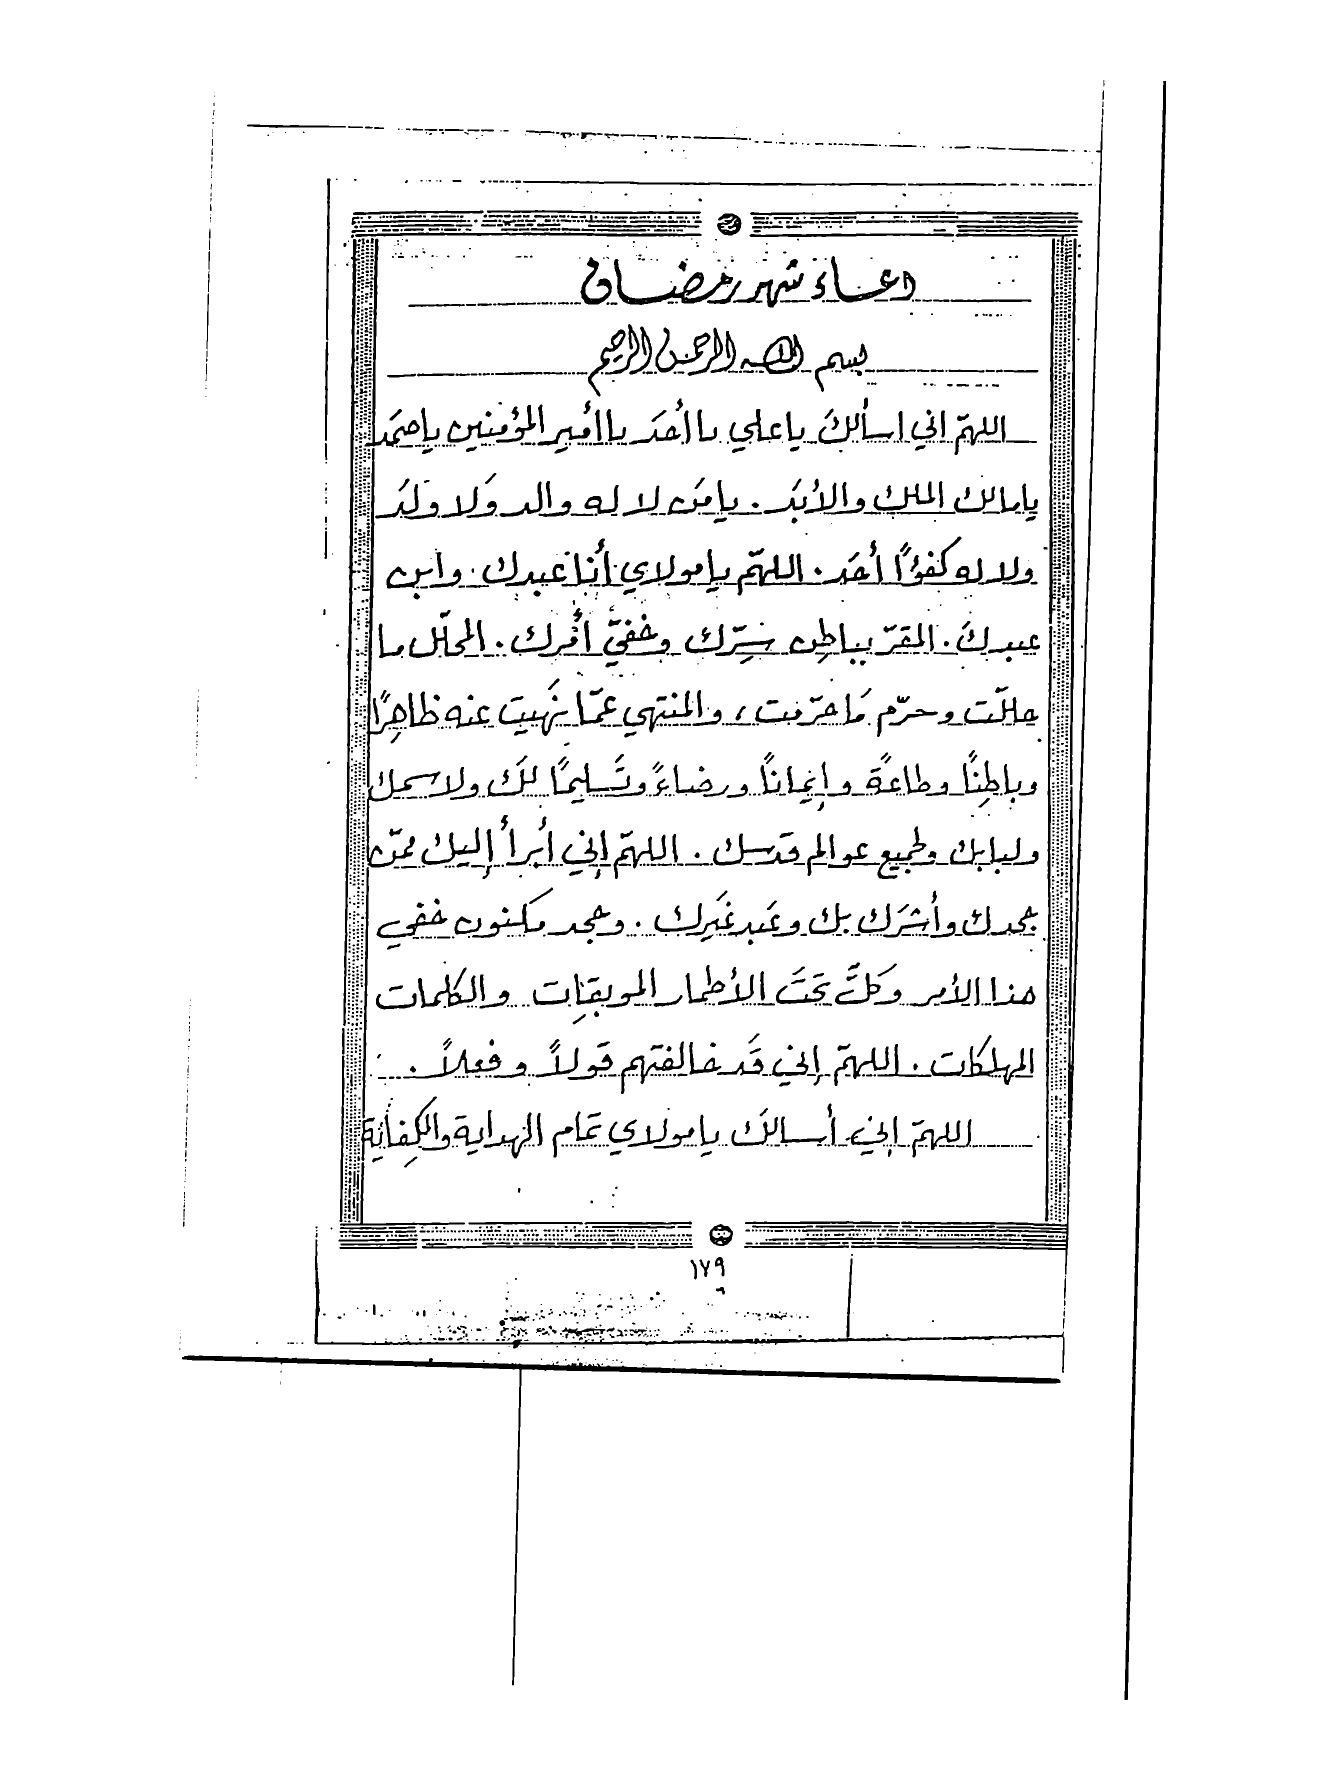 دعاء شهر رمضان
بسم الله الرحمن الرحيم
اللهمّ اني اسألكَ يا علي يا أحَد يا أمير المؤمنين يا صمَد
يا مالك الملك والأبَد. يا مَن لا له والد وَلا ولَد
ولا له كفوًا أحَد. اللهمّ يا مولاي أنا عبدك وابن
عبدكَ. المقرّ بباطِن سِرّك وخفيّ أمْرك. المحلّل ما
حللّت وحرّم مَا حرّمت، والمنتهي عمّا نَهيتَ عنه ظاهِرًا
وباطِنًا وطاعَةً وإيمانًا ورضاءً وتَسليمًا لكَ ولاسمك
ولبابك ولجميع عوالم قدَسك. اللهمّ إني أبرأ إليك ممّن
جحدك وأشرَك بك وعَبد غَيرك. وجحد مكنون خفي
هذا الأمر وكلَّ تحتَ الأطمار الموبقِات والكلمات
المهلكات. اللهمّ إني قَد خالفتهم قولاً وفعلاً.
اللهمّ إني أسالكَ يا مولاي تمام الهداية والكِفاية
١٧٩